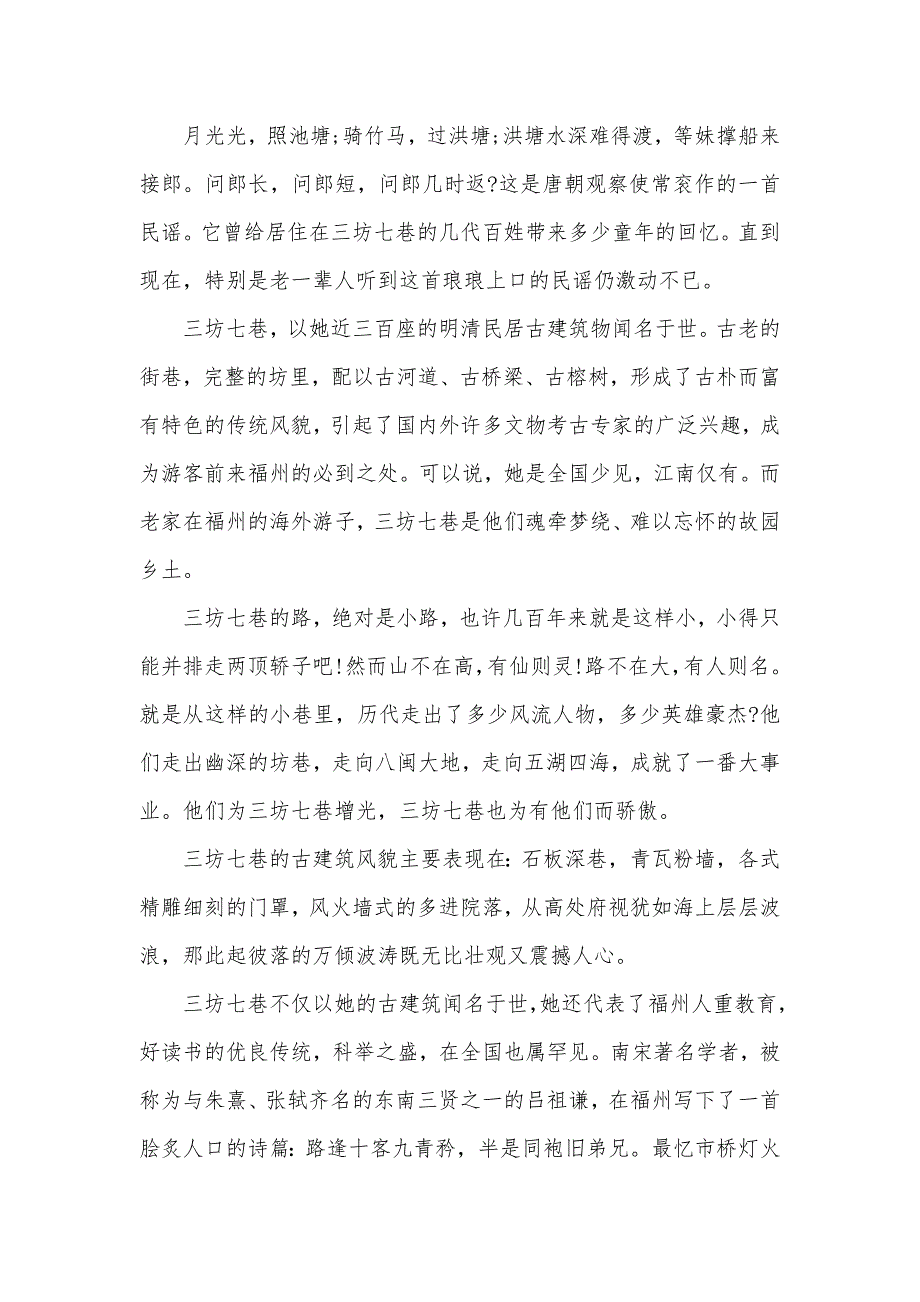 月光光，照池塘;骑竹马，过洪塘;洪塘水深难得渡，等妹撑船来
接郎。问郎长，问郎短，问郎几时返?这是唐朝观察使常衮作的一首
民谣。它曾给居住在三坊七巷的几代百姓带来多少童年的回忆。直到
现在，特别是老一辈人听到这首琅琅上口的民谣仍激动不已。
三坊七巷，以她近三百座的明清民居古建筑物闻名于世。古老的
街巷，完整的坊里，配以古河道、古桥梁、古榕树，形成了古朴而富
有特色的传统风貌，引起了国内外许多文物考古专家的广泛兴趣，成
为游客前来福州的必到之处。可以说，她是全国少见，江南仅有。而
老家在福州的海外游子，三坊七巷是他们魂牵梦绕、难以忘怀的故园
乡土。
三坊七巷的路，绝对是小路，也许几百年来就是这样小，小得只
能并排走两顶轿子吧!然而山不在高，有仙则灵!路不在大，有人则名。
就是从这样的小巷里，历代走出了多少风流人物，多少英雄豪杰?他
们走出幽深的坊巷，走向八闽大地，走向五湖四海，成就了一番大事
业。他们为三坊七巷增光，三坊七巷也为有他们而骄傲。
三坊七巷的古建筑风貌主要表现在：石板深巷，青瓦粉墙，各式
精雕细刻的门罩，风火墙式的多进院落，从高处府视犹如海上层层波
浪，那此起彼落的万倾波涛既无比壮观又震撼人心。
三坊七巷不仅以她的古建筑闻名于世，她还代表了福州人重教育，
好读书的优良传统，科举之盛，在全国也属罕见。南宋著名学者，被
称为与朱熹、张轼齐名的东南三贤之一的吕祖谦，在福州写下了一首
脍炙人口的诗篇：路逢十客九青矜，半是同袍旧弟兄。最忆市桥灯火